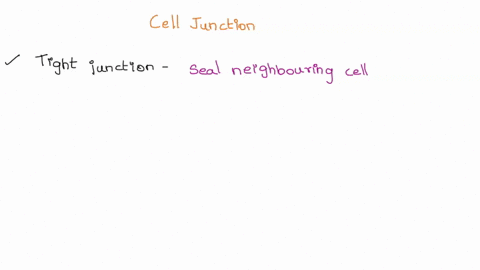 Cell Junction
✓ Tight junction - Seal neighbouring cell